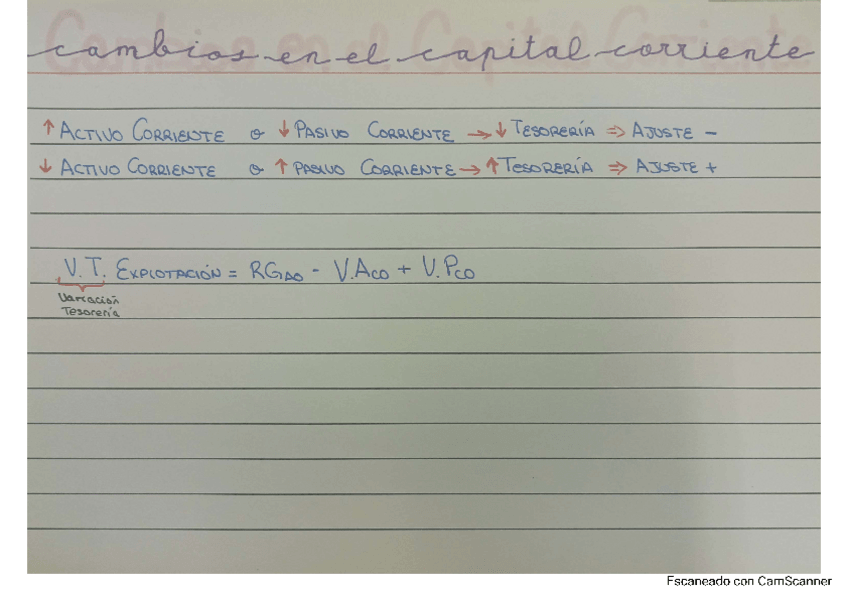 cambios en el capital corriente
↑ ACTIVO CORRIENTE o ↓ PASIVO CORRIENTE → ↓ TESORERÍA ⇒ AJUSTE -
↓ ACTIVO CORRIENTE o ↑ PASIVO CORRIENTE → ↑ TESORERÍA ⇒ AJUSTE +
V.T. EXPLOTACIÓN = RGAO - V.ACO + V.PCO
Variación
Tesorería
Escaneado con CamScanner